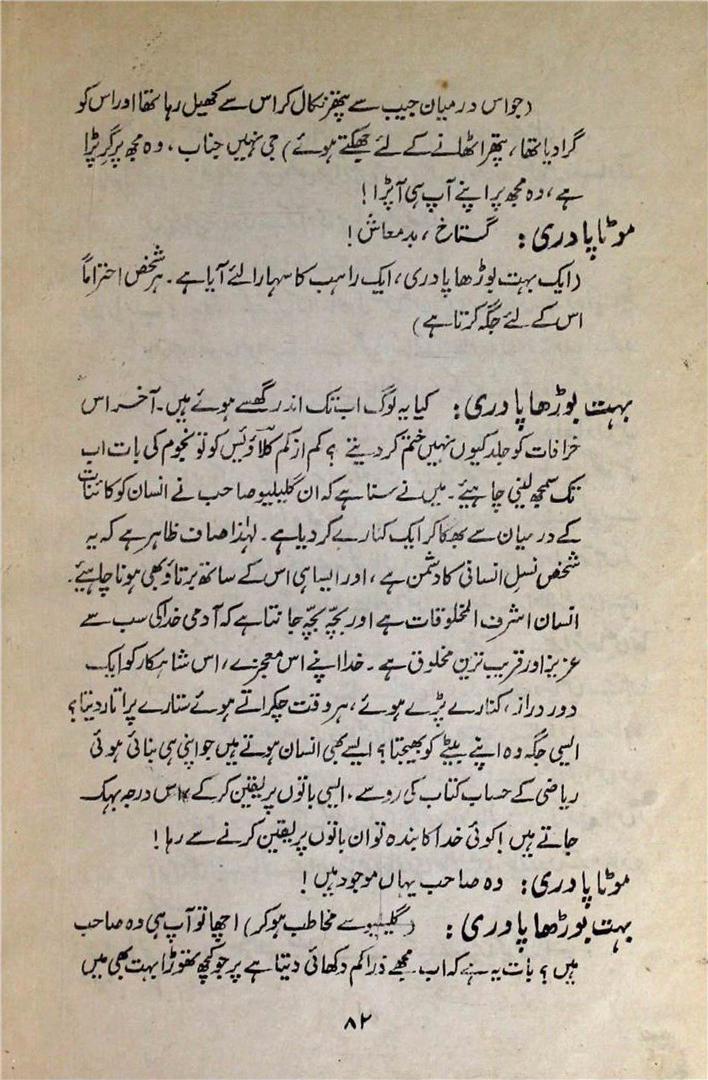 (جو اس درمیان جیب سے پتھر نکال کر اس سے کھیل رہا تھا اور اس کو
گرا دیا تھا، پتھر اٹھانے کے لئے جھکتے ہوئے) جی نہیں جناب، وہ مجھ پر گر پڑا
ہے، وہ مجھ پر اپنے آپ ہی آ پڑا!
موٹا پادری: گستاخ، بدمعاش!
(ایک بہت بوڑھا پادری، ایک راہب کا سہارا لئے آیا ہے۔ ہر شخص احتراماً
اس کے لئے جگہ کرتا ہے)
بہت بوڑھا پادری: کیا یہ لوگ اب تک اندر گھسے ہوئے ہیں۔ آخر اس
خرافات کو جلد کیوں نہیں ختم کر دیتے؟ کم از کم کلاؤیس کو تو نجوم کی بات اب
تک سمجھ لینی چاہیئے۔ میں نے سنا ہے کہ ان گلیلیو صاحب نے انسان کو کائنات
کے درمیان سے بھگا کر ایک کنارے کر دیا ہے۔ لہٰذا صاف ظاہر ہے کہ یہ
شخص نسلِ انسانی کا دشمن ہے، اور ایسا ہی اس کے ساتھ برتاؤ بھی ہونا چاہیئے۔
انسان اشرف المخلوقات ہے اور بچّہ بچّہ جانتا ہے کہ آدمی خدا کی سب سے
عزیز اور قریب ترین مخلوق ہے۔ خدا اپنے اس معجزے، اس شاہکار کو ایک
دور دراز، کنارے پڑے ہوئے، ہر وقت چکراتے ہوئے ستارے پر اتار دیتا؟
ایسی جگہ وہ اپنے بیٹے کو بھیجتا؟ ایسے بھی انسان ہوتے ہیں جو اپنی ہی بنائی ہوئی
ریاضی کے حساب کتاب کی رو سے، ایسی باتوں پر یقین کر کے اس درجہ بہک
جاتے ہیں! کوئی خدا کا بندہ تو ان باتوں پر یقین کرنے سے رہا!
موٹا پادری: وہ صاحب یہاں موجود ہیں!
بہت بوڑھا پادری: (گلیلیو سے مخاطب ہو کر) اچھا تو آپ ہی وہ صاحب
ہیں؟ بات یہ ہے کہ اب مجھے ذرا کم دکھائی دیتا ہے پر جو کچھ تھوڑا بہت بھی میں
۸۲